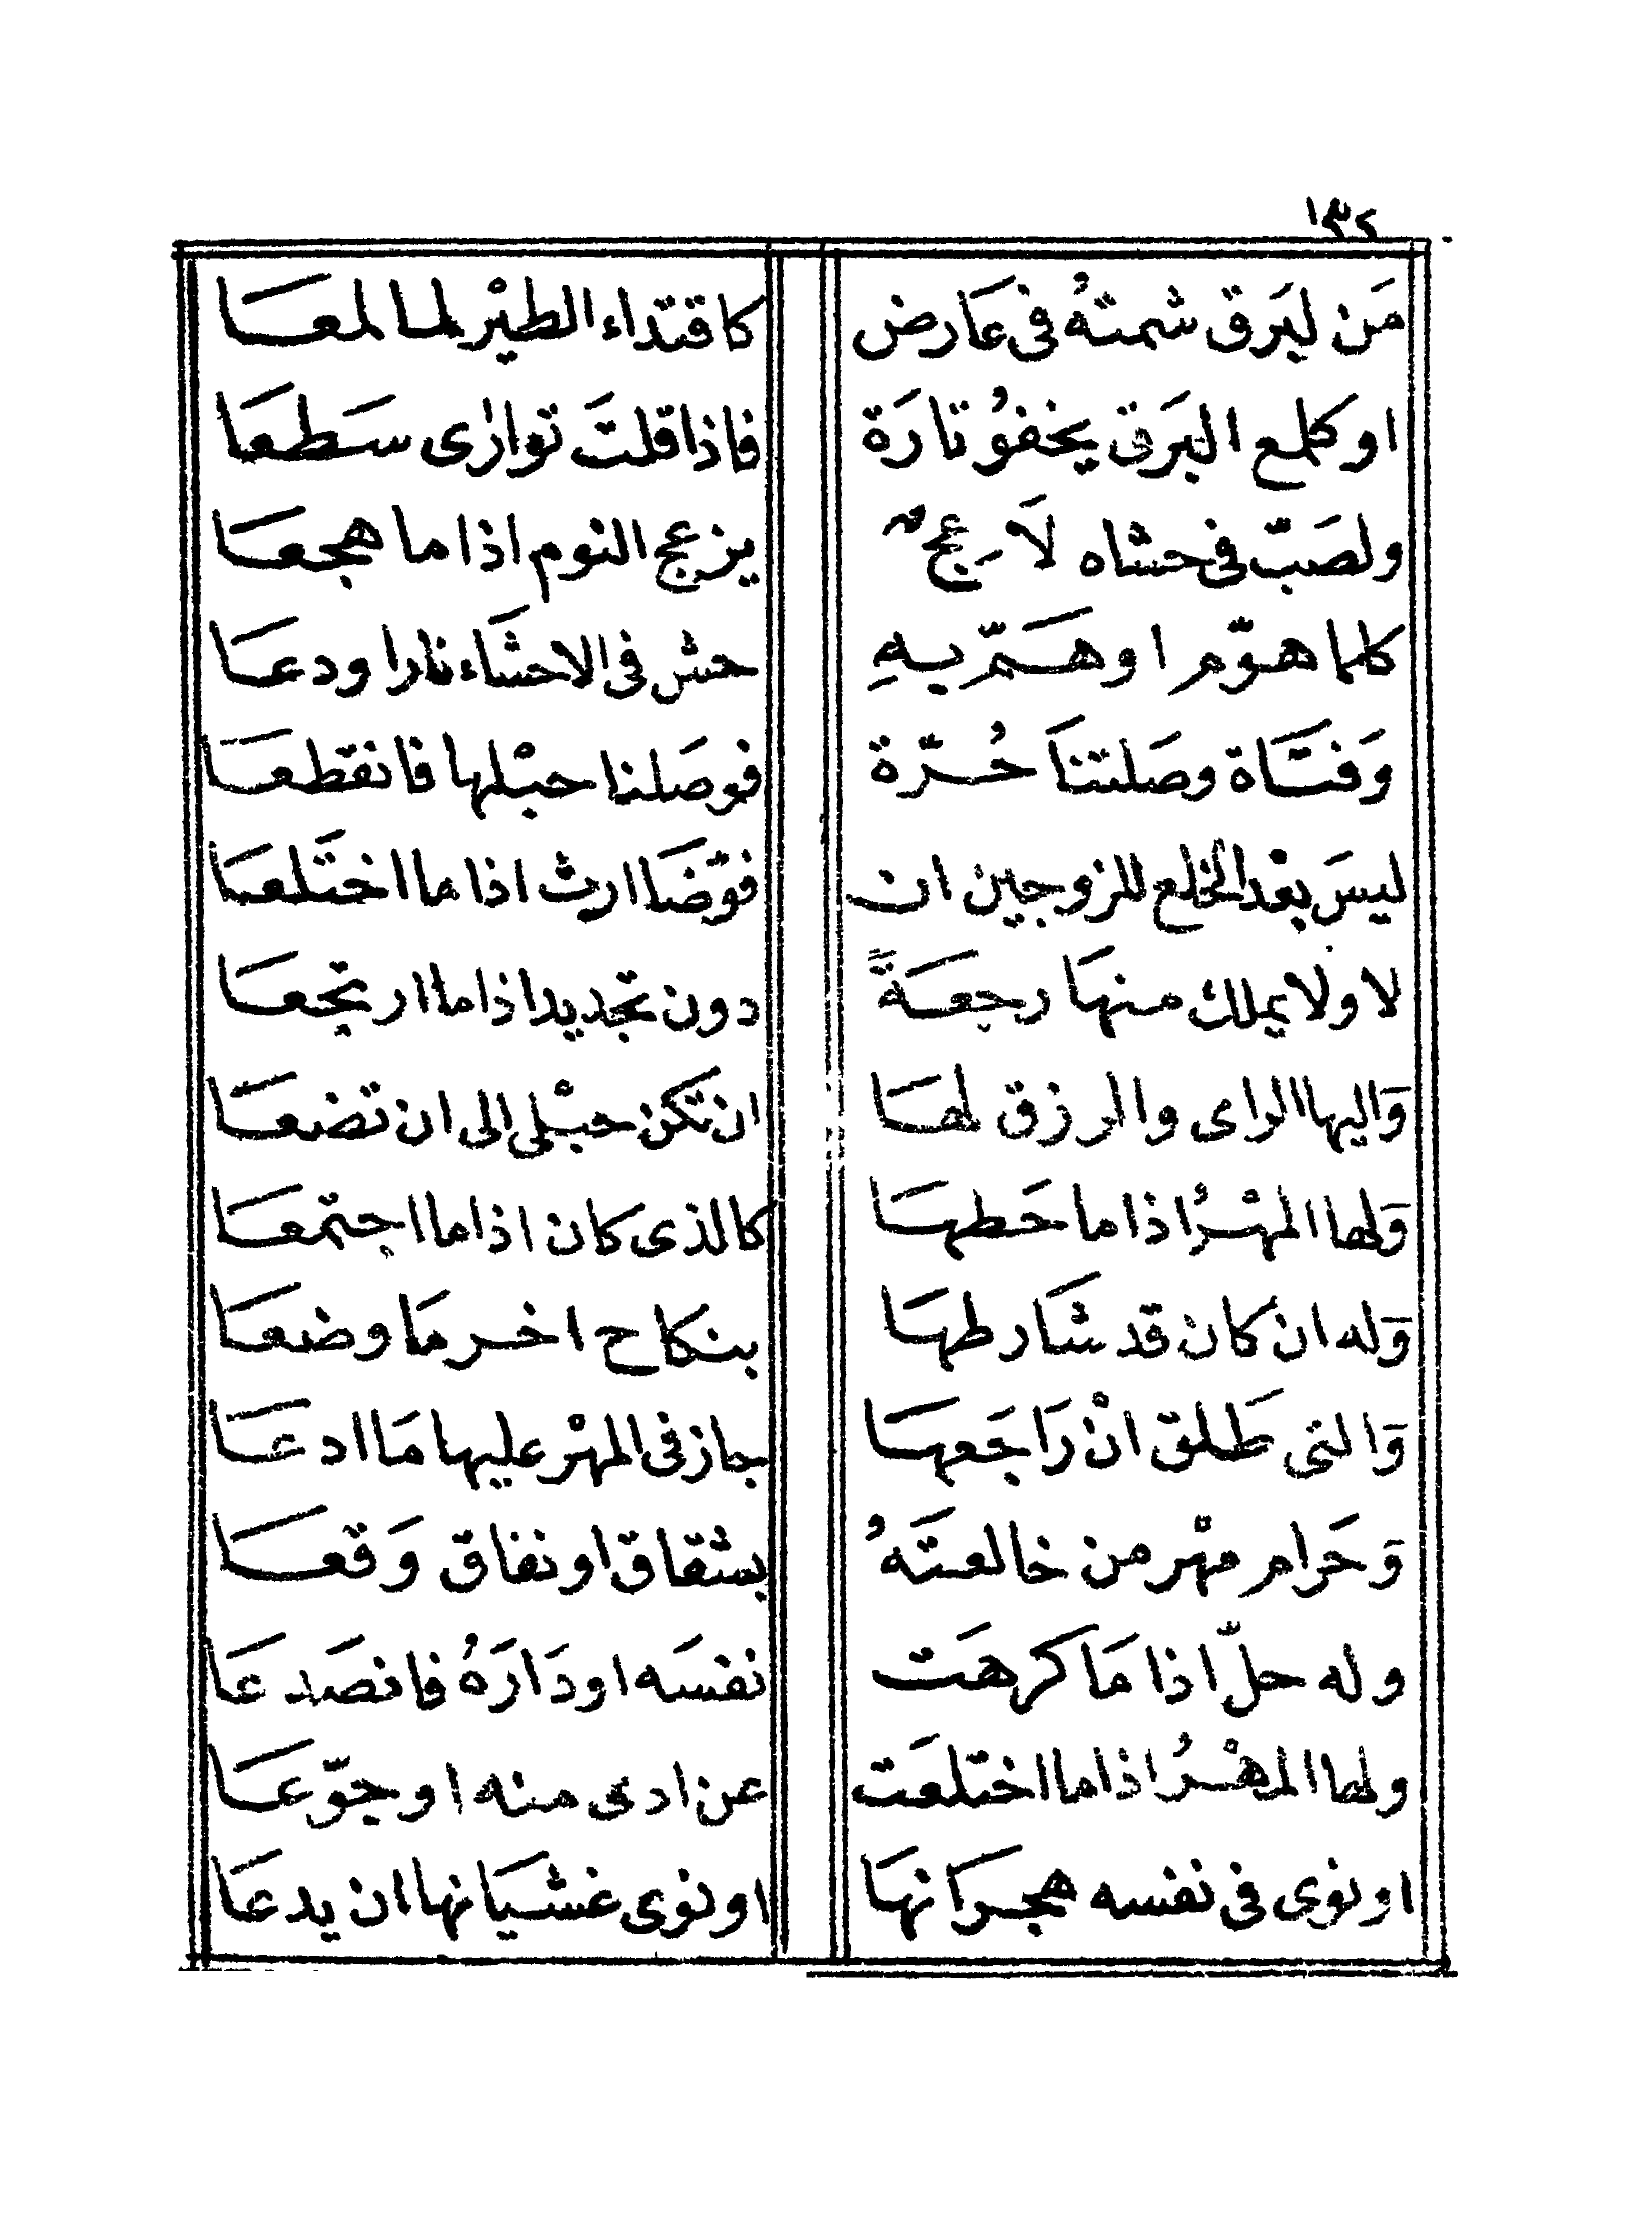 ١٣٢
مَن لبَرق شمتهُ فى عَارض كاقتداء الطيْر لما لمعَا
او كلمع البَرق يخفوُ تارَة فاذا قلتَ توارٰى سَطعَا
ولصَبّ فى حشاه لاَعجٌ يزعج النوم اذا ما هجعَا
كلما هوّم او هَمّ بهِ حش فى الاحشَاء نارا ودعَا
وَفتَاة وصلتناَ حُرّة فوصَلنا حبْلها فانقطعَا
ليسَ بعْد الخلع للزوجين ان فوّضَا ارث اذا ما اختَلعَا
لا ولا يملك منهَا رجعَةً دون تجديد اذا ما ارتجعَا
وَاليها الراى والرزق لهَا ان تكن حبْلى الى ان تضعَا
وَلها المهْرُ اذا ما خَطهَا كالذى كان اذا ما اجتمعَا
وَله ان كان قد شَارطهَا بنكاح اخر مَا وضعَا
وَالتى طَلق انْ رَاجَعهَا جاز فى المهْر عليها مَا ادعَا
وَحَرام مهْر من خالعتَهُ بشقاق او نفاق وَقعَا
وله حلّ اذا مَا كرهَت نفسَه او دَارَهُ فانصَدعَا
ولها المهْرُ اذا ما اختلعَت عن ادى منه او جوّعَا
او نوى فى نفسه هجرَانهَا او نوى غشيَانها ان يدعَا